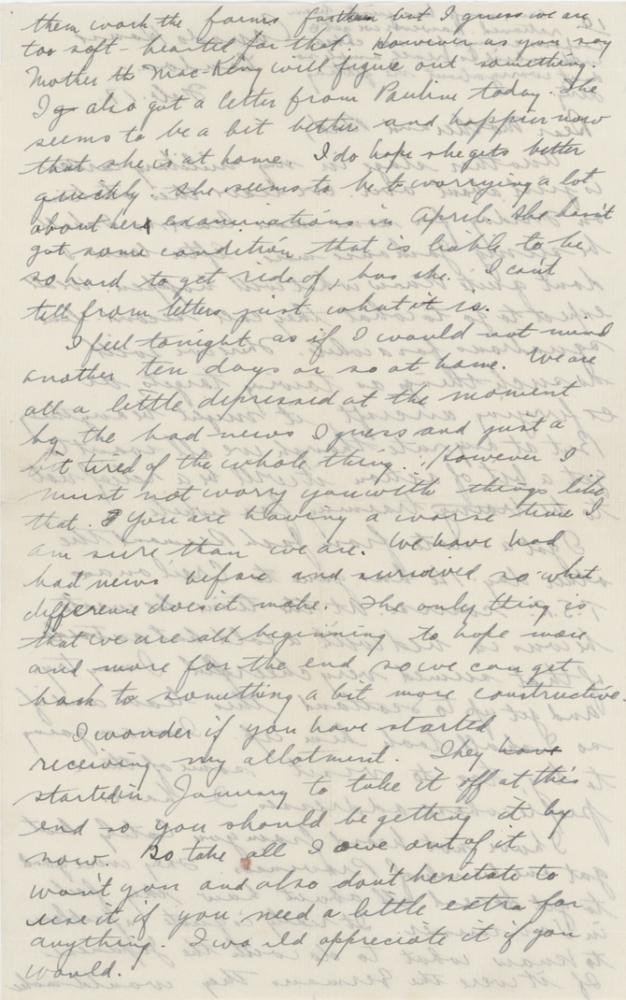 them work the farms farther but I guess we are
too soft-hearted for that. However as you say
Mother the Mac-King will figure out something.
I also got a letter from Pauline today. She
seems to be a bit better and happier now
that she is at home. I do hope she gets better
quickly. She seems to be worrying a lot
about her examinations in April. She hasn't
got some condition that is liable to be
so hard to get ride of, has she. I can't
tell from letters just what it is.
I feel tonight as if I would not mind
another ten days or so at home. We are
all a little depressed at the moment
by the bad news I guess and just a
bit tired of the whole thing. However I
must not worry you with things like
that. You are having a worse time I
am sure than we are. We have had
bad news before and survived so what
difference does it make. The only thing is
that we are all beginning to hope more
and more for the end so we can get
back to something a bit more constructive.
I wonder if you have started
receiving my allotment. They have
started in January to take it off at this
end so you should be getting it by
now. So take all I owe out of it
won't you and also don't hesitate to
use it if you need a little extra for
anything. I would appreciate it if you
would.